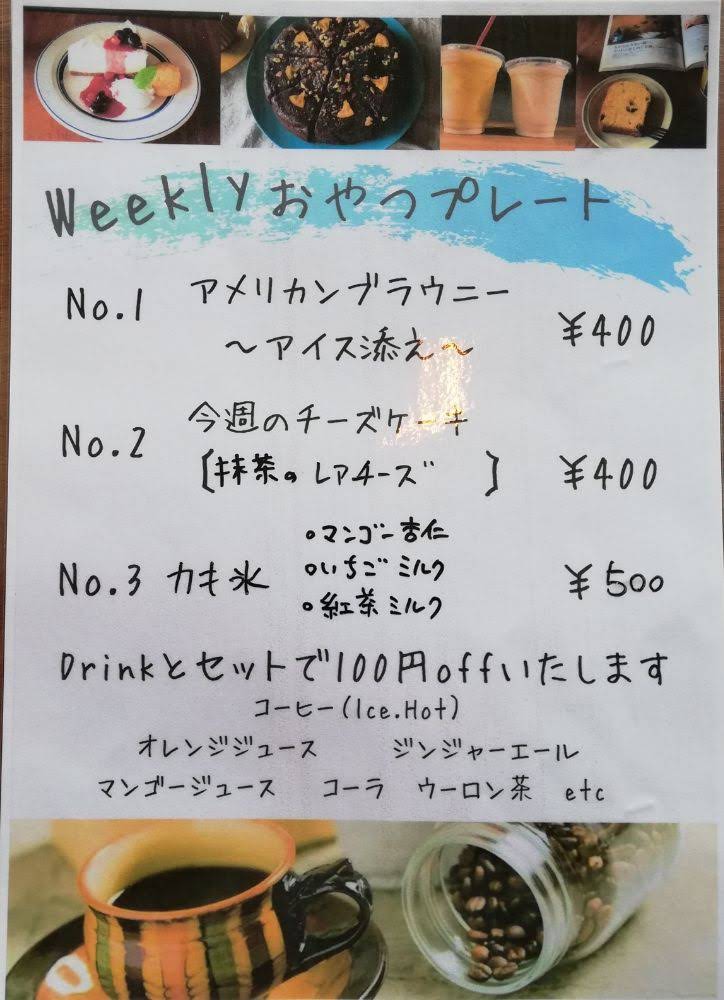 Weeklyおやつプレート
No.1 アメリカンブラウニー
～アイス添え～ ¥400
No.2 今週のチーズケーキ
[抹茶のレアチーズ ] ¥400
No.3 カキ氷 ¥500
○マンゴー杏仁
○いちごミルク
○紅茶ミルク
Drinkとセットで100円offいたします
コーヒー(Ice.Hot)
オレンジジュース ジンジャーエール
マンゴージュース コーラ ウーロン茶 etc